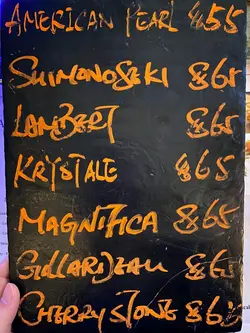 AMERICAN PEARL $55
SHIMONOSEKI $65
LAMBERT $65
KRYSTALE $65
MAGNIFICA $65
GILLARDEAU $65
CHERRYSTONE $65